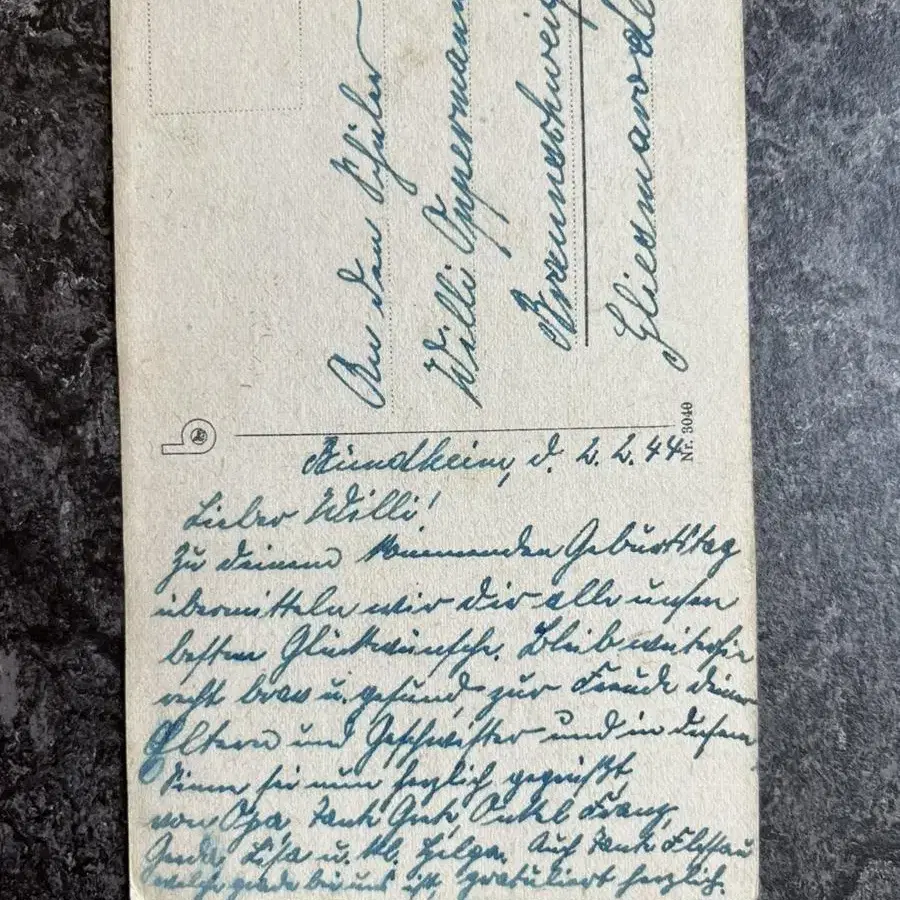 An den Schüler
Willi Oppermann
Braunschweig
Gliesmarode
Nr. 3040
d. 2. 2. 44
Lieber Willi!
Zu deinem kommenden Geburtstag
übermitteln wir dir alle unsern
besten Glückwünsche. Bleib weiterhin
recht brav u. gesund, zur Freude deiner
Eltern und Geschwister und in diesem
Sinne sei nun herzlich gegrüßt
von Opa Tante Onkel Franz,
Gerda, Lisa u. kl. Helga. Auch Tante
welche grade bei uns ist, gratuliert herzlich.